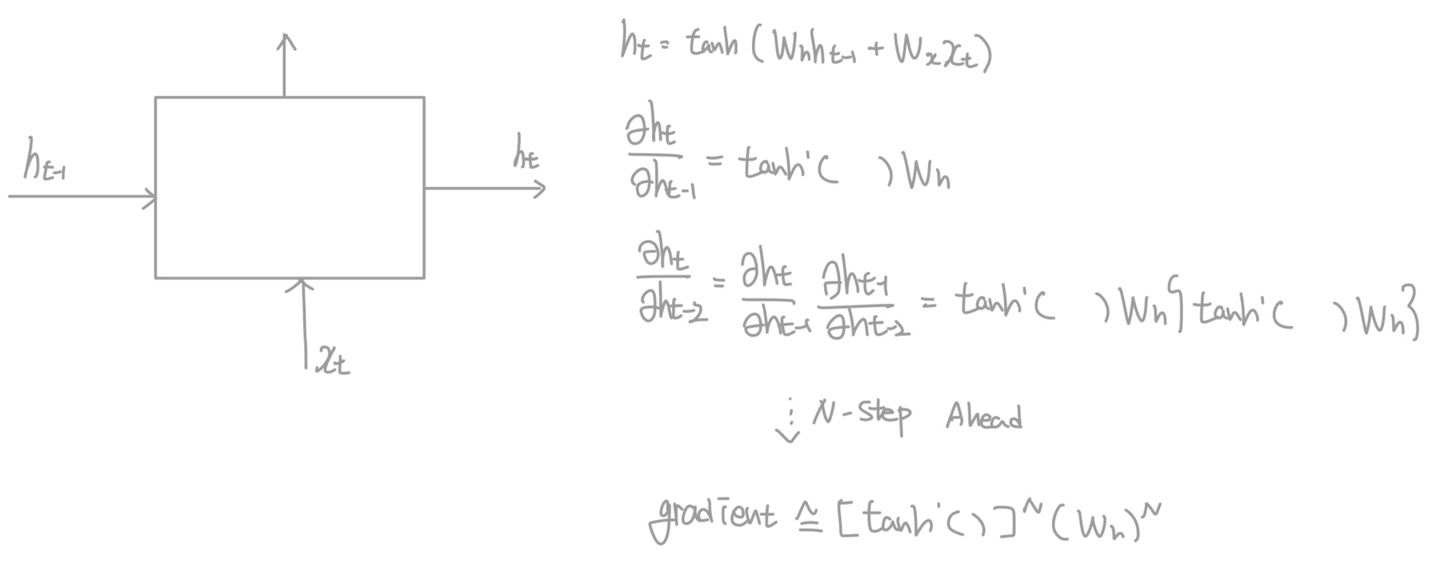 h_{t-1}
h_t
x_t
h_t = tanh (W_h h_{t-1} + W_x x_t)
∂h_t/∂h_{t-1} = tanh'( )W_h
∂h_t/∂h_{t-2} = ∂h_t/∂h_{t-1} ∂h_{t-1}/∂h_{t-2} = tanh'( )W_h{tanh'( )W_h}
N-Step Ahead
gradient ≅ [tanh'()]^N (W_h)^N